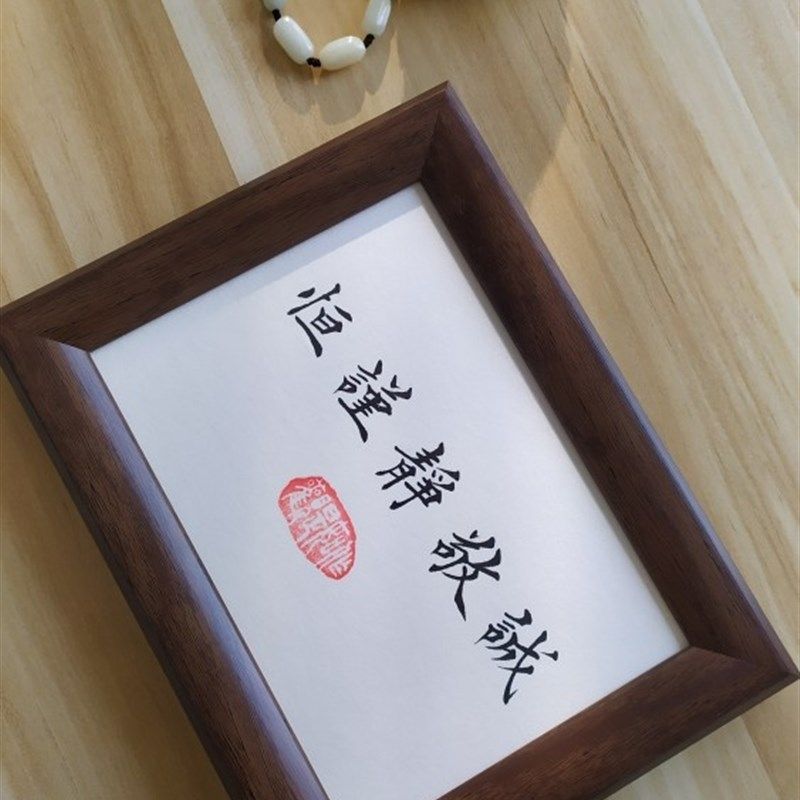 誠敬靜謹恒